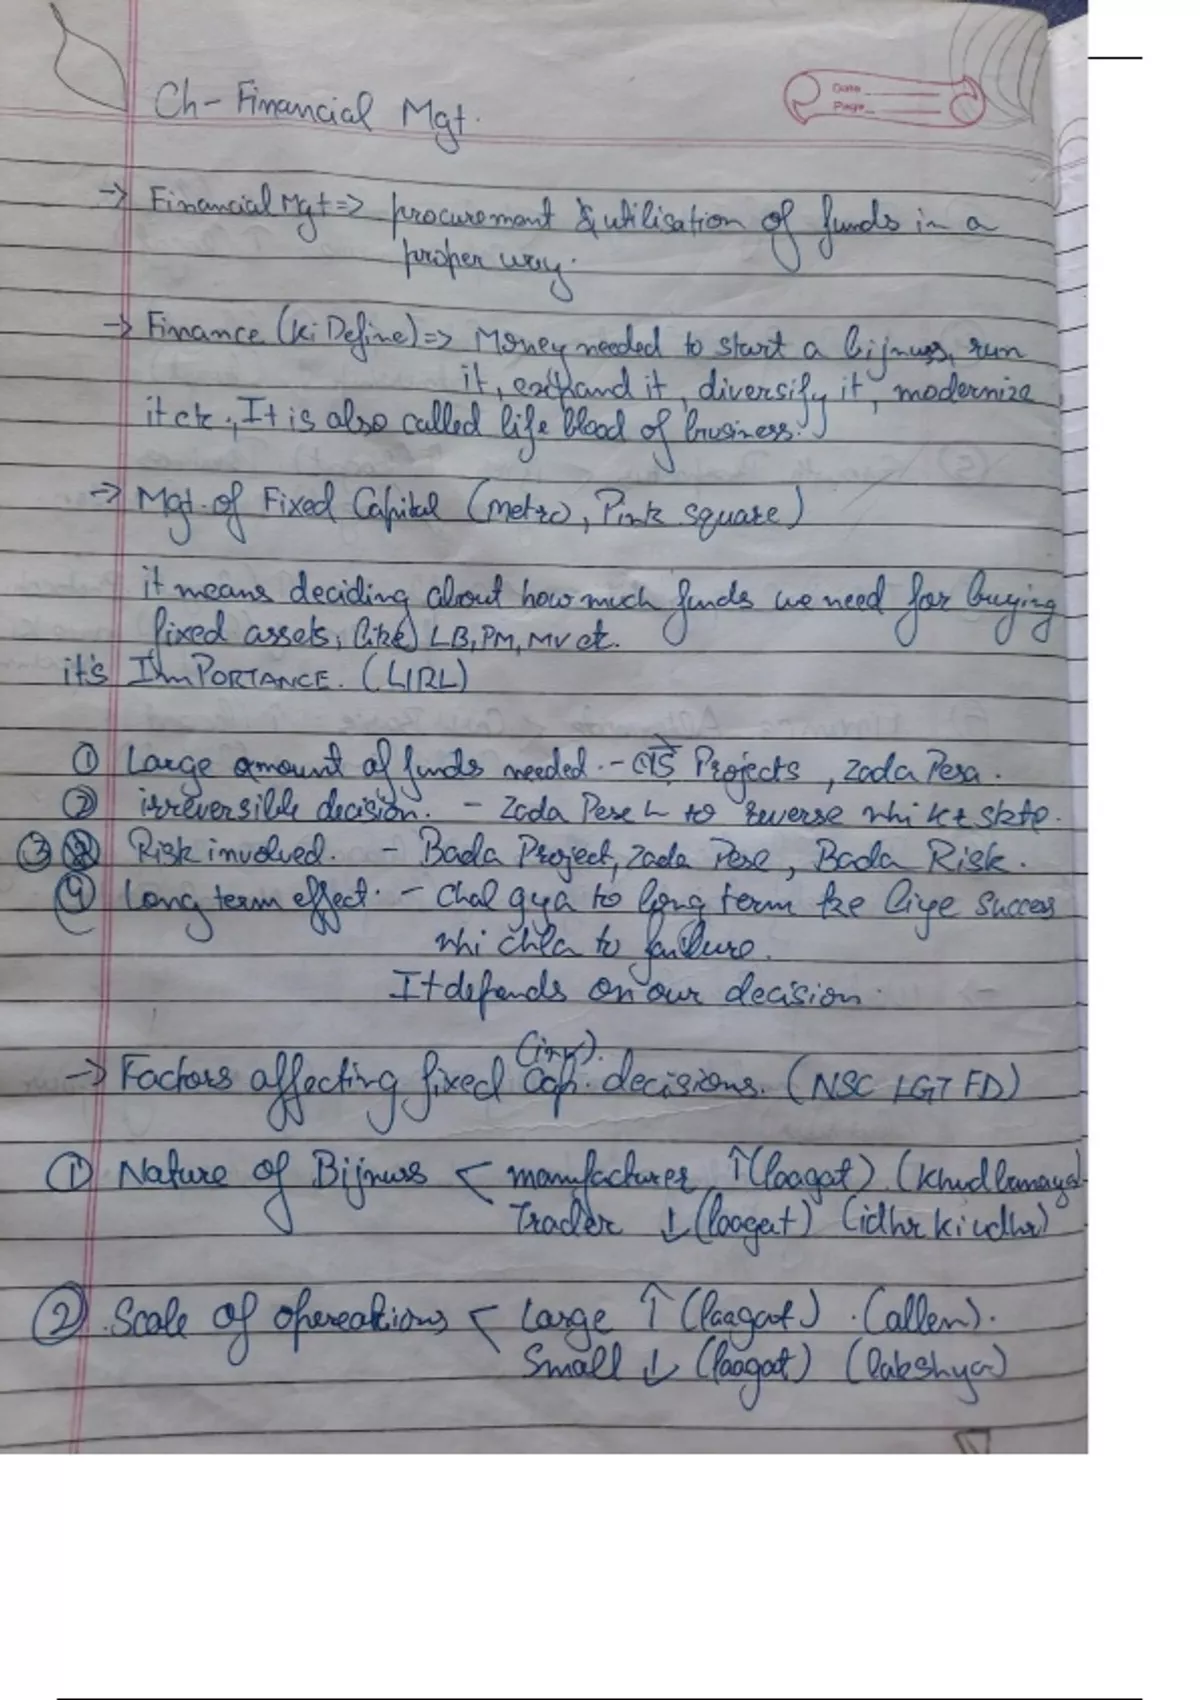 Ch - Financial Mgt.
Date
Page
→ Financial Mgt => procurement & utilisation of funds in a
proper way.
→ Finance (ki Define) => Money needed to start a bijnuss, run
it, expand it, diversify it, modernize
it etc., It is also called life blood of business.
→ Mgt. of Fixed Capital (metro, Pink square)
it means deciding about how much funds we need for buying
fixed assets, (like) LB, PM, MV etc.
it's IMPORTANCE. (LIRL)
① Large amount of funds needed. - बड़े Projects, Zada Pesa.
② irreversible decision. - Zada Pese to reverse nhi kr skte.
③ Risk involved. - Bada Project, Zada Pese, Bada Risk.
④ Long term effect. - Chal gya to long term ke liye success
nhi chla to failure.
It depends on our decision.
(inv).
→ Factors affecting fixed Cap. decisions. (NSC LGT FD)
① Nature of Bijnuss < manufacturer ↑ (laagat) (Khud banaya)
Trader ↓ (laagat) (idhr ki udhr)
② Scale of opereations < Large ↑ (laagat). (allen).
Small ↓ (laagat) (lakshya)